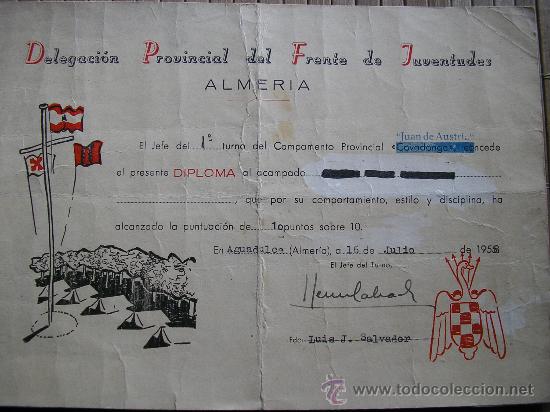 Delegación Provincial del Frente de Juventudes
ALMERIA
"Juan de Austri.."
El Jefe del 1º turno del Campamento Provincial «Covadonga» concede
al presente DIPLOMA al acampado
, que por su comportamiento, estilo y disciplina, ha
alcanzado la puntuación de 10 puntos sobre 10.
En Aguadulce (Almería), a 16 de Julio de 1958
El Jefe del Turno,
Fdo: Luis J. Salvador
© www.todocoleccion.net